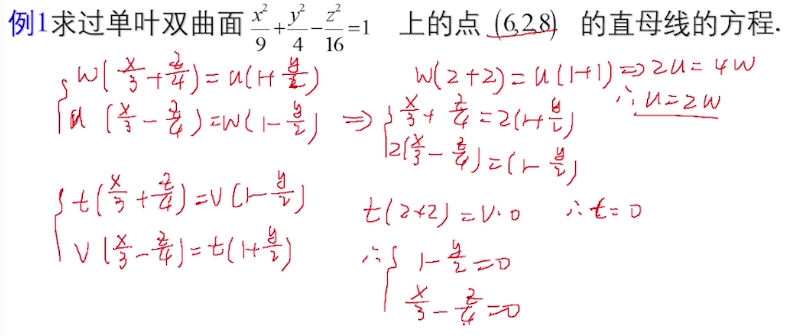 例1求过单叶双曲面 x²/9 + y²/4 − z²/16 = 1 上的点 (6,2,8) 的直母线的方程.
{ w(x/3 + z/4) = u(1 + y/2)
u(x/3 − z/4) = w(1 − y/2)
w(2+2) = u(1+1) ⇒ 2u = 4w
∴ u = 2w
⇒ { x/3 + z/4 = 2(1 + y/2)
2(x/3 − z/4) = (1 − y/2)
{ t(x/3 + z/4) = v(1 − y/2)
v(x/3 − z/4) = t(1 + y/2)
t(2+2) = v·0 ∴ t = 0
∴ { 1 − y/2 = 0
x/3 − z/4 = 0